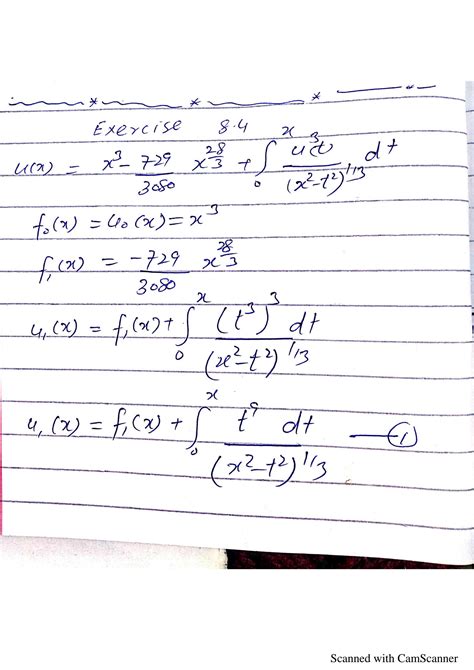 Exercise 8.4
u(x) = x³ - 729/3080 x^28/3 + ∫₀ˣ u³(t)/(x²-t²)^1/3 dt
f₀(x) = u₀(x) = x³
f₁(x) = -729/3080 x^28/3
u₁(x) = f₁(x) + ∫₀ˣ (t³)³ dt/(x²-t²)^1/3
u₁(x) = f₁(x) + ∫₀ˣ t⁹ dt/(x²-t²)^1/3 — ①
Scanned with CamScanner